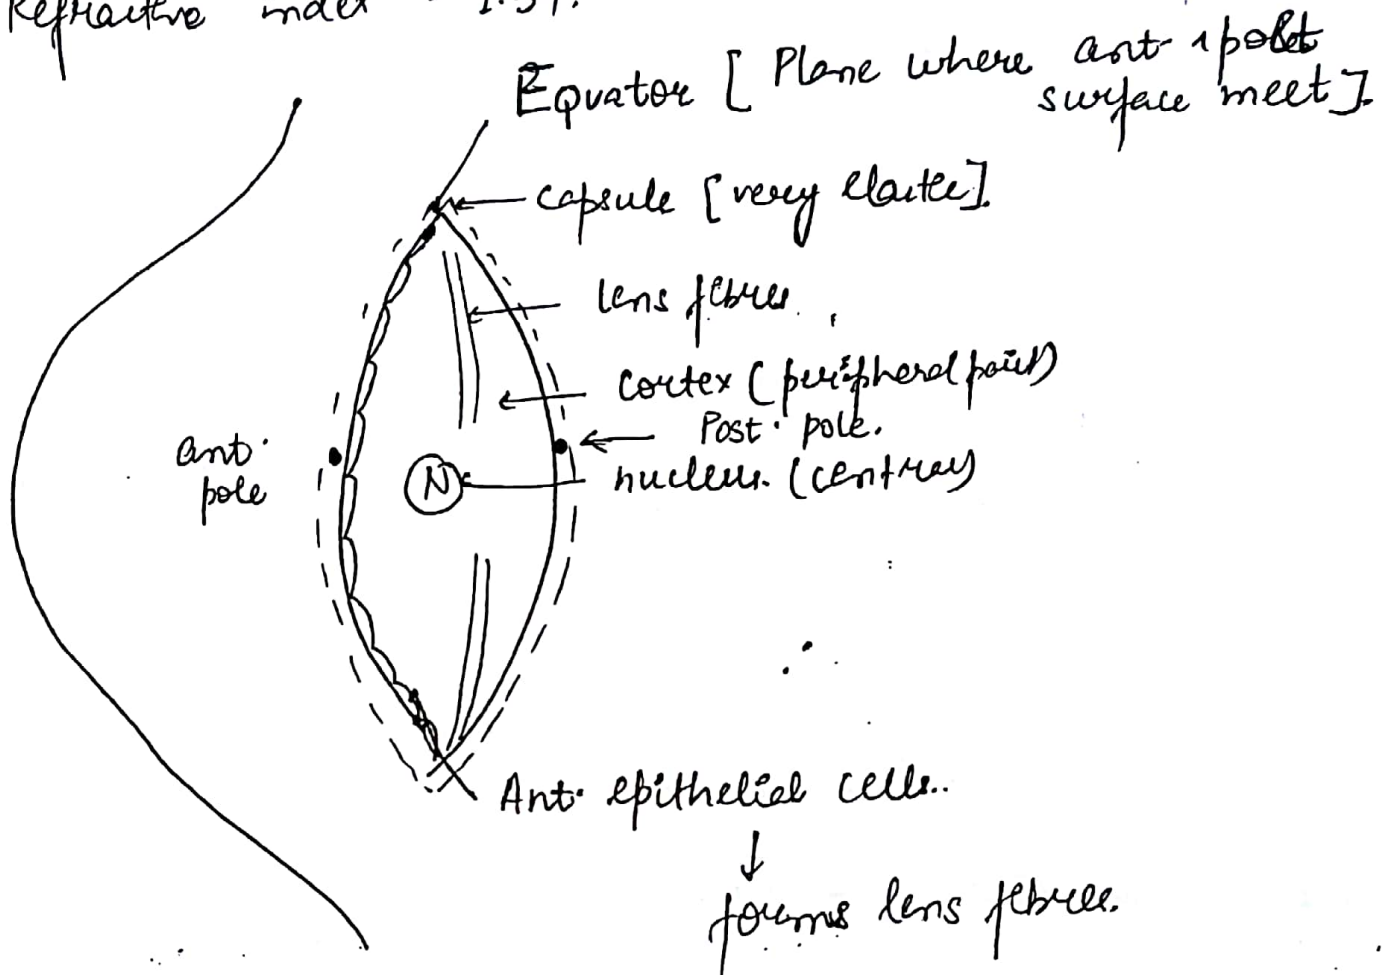 Refractive index - 1.39.
Equator [ Plane where ant. & post
surface meet ].
capsule [very elastic].
lens fibres.
cortex (peripheral part)
Post. pole.
ant.
pole
N
nucleus. (central)
Ant. epithelial cells..
↓
forms lens fibres.